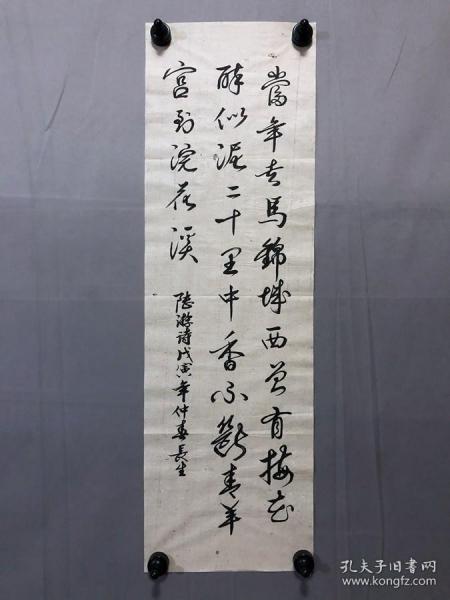 當年走馬錦城西曾有梅花
醉似泥二十里中香不斷青羊
宫到浣花溪
陸游詩戊寅年仲春長生
孔夫子旧书网
www.kongfz.com